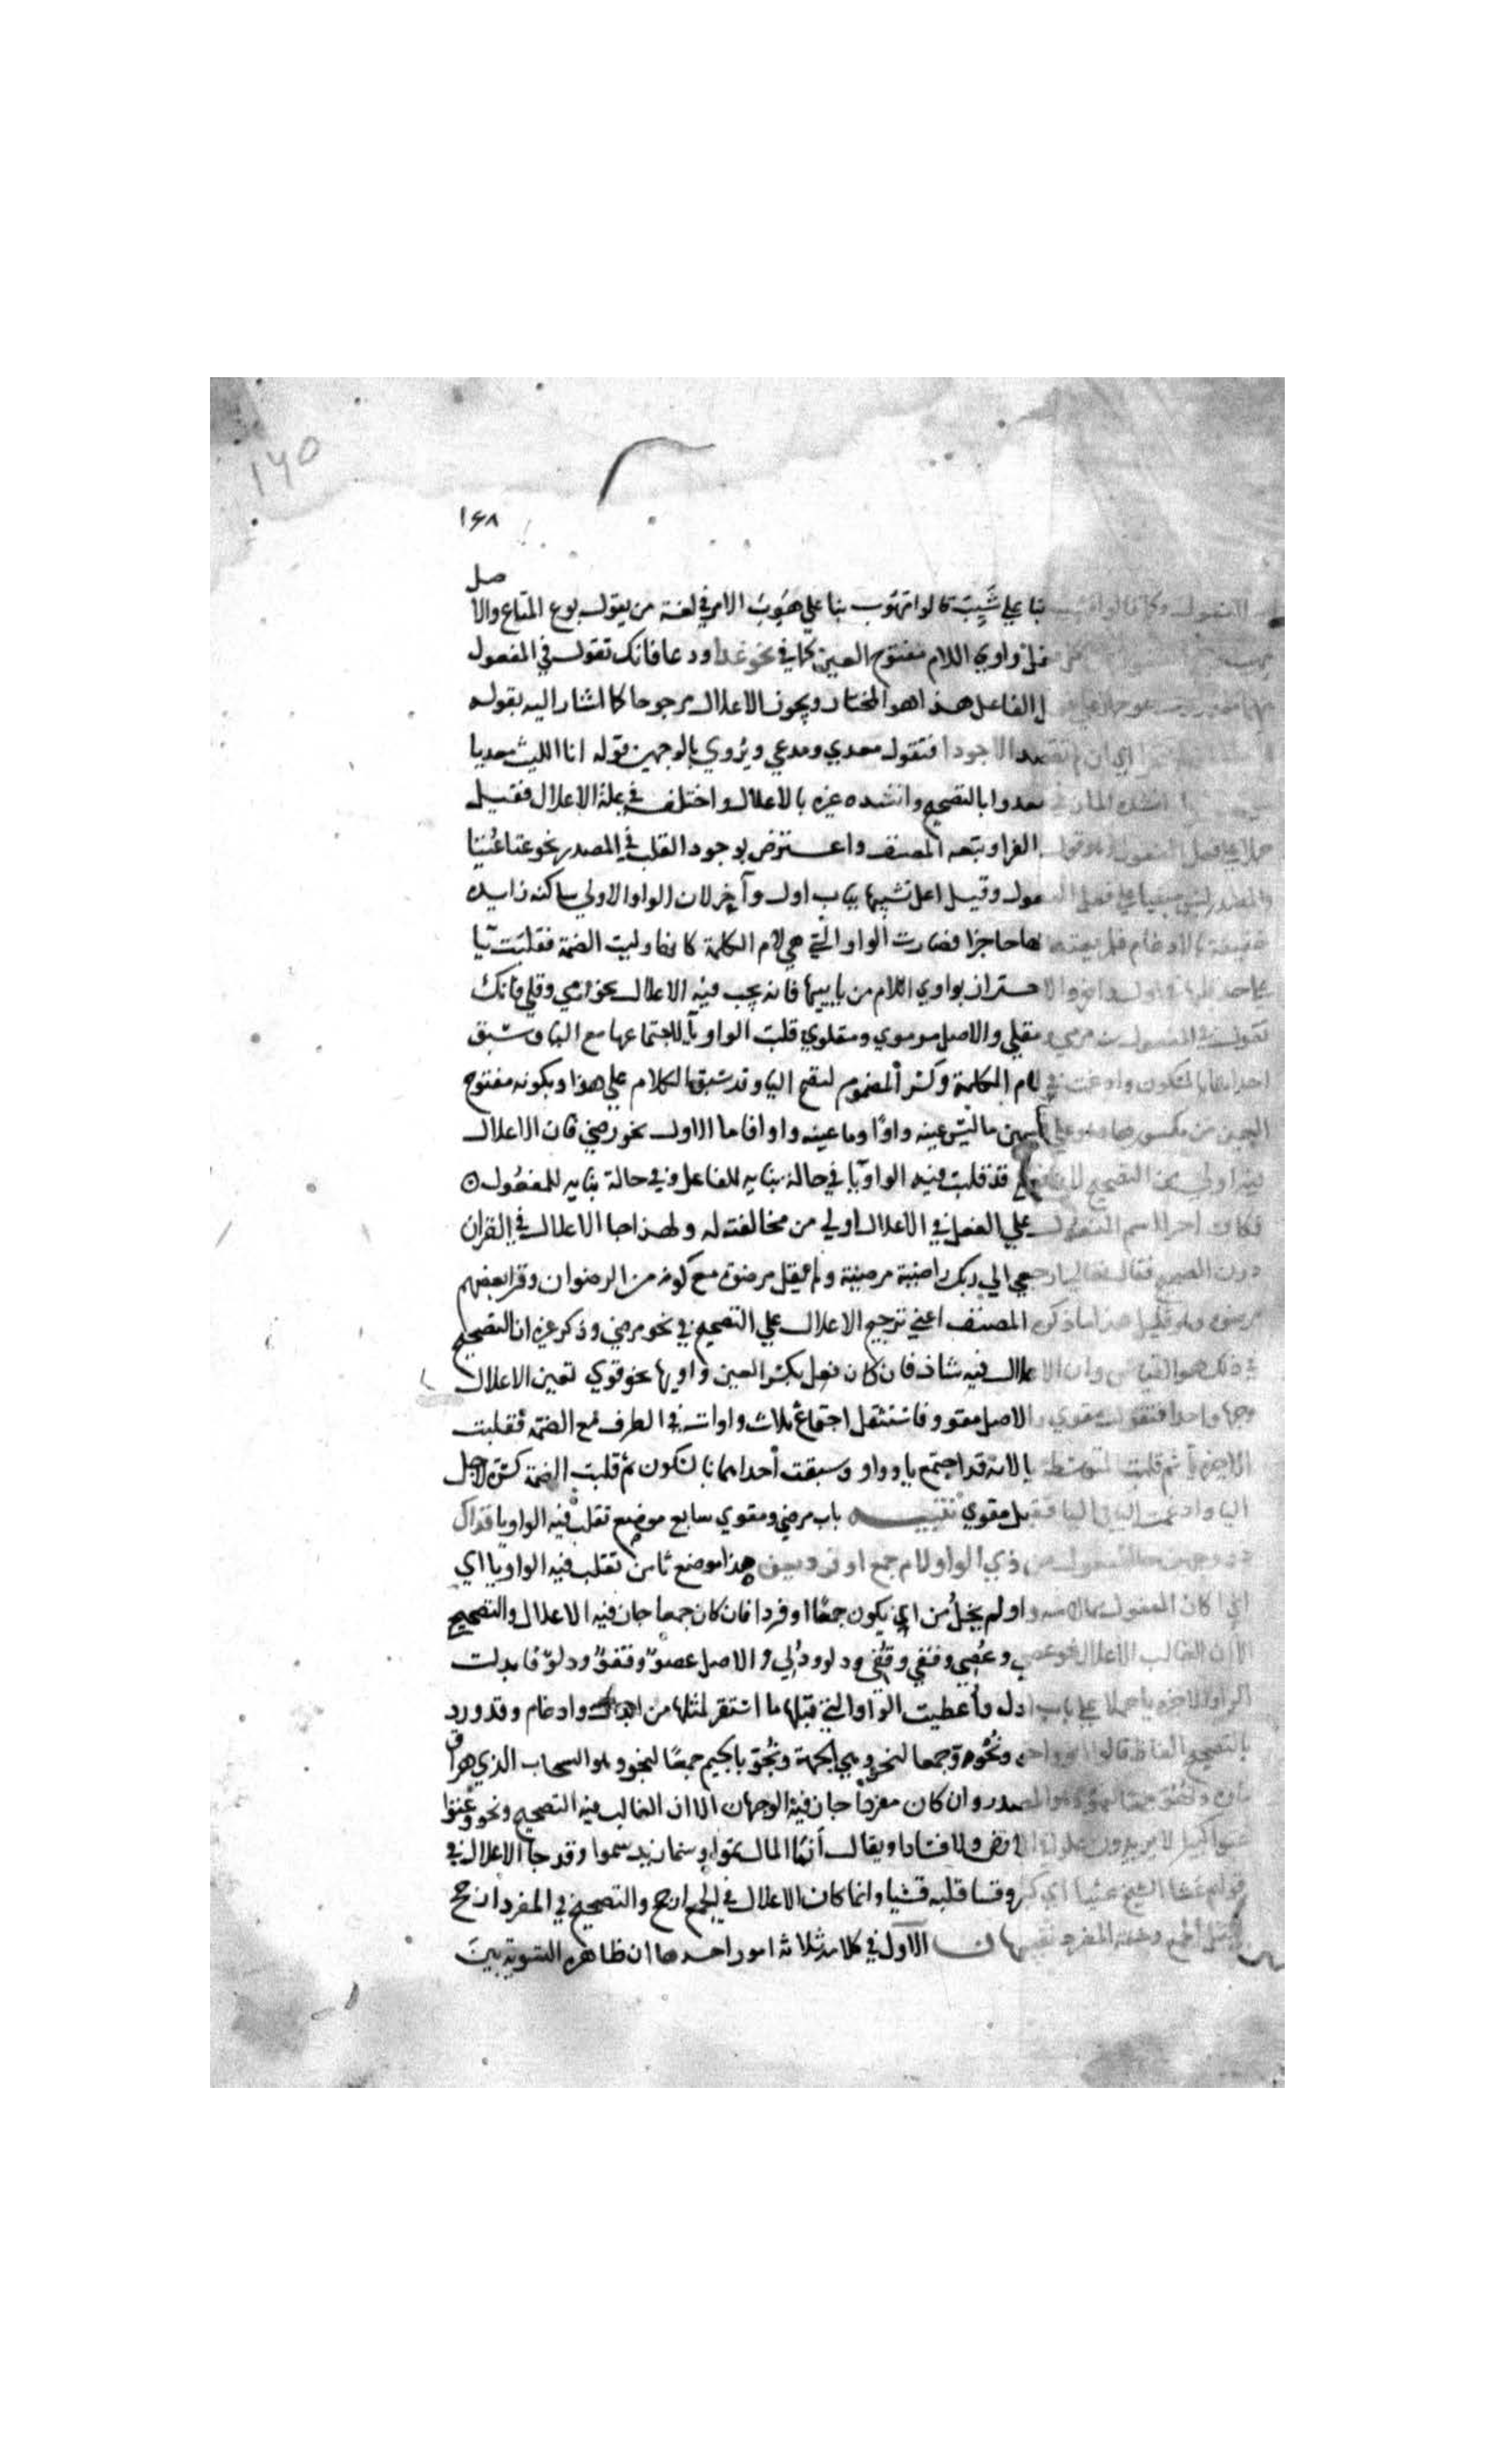 ١٤٥
١٤٨
صل
بنا علي شَيِبَ قالوا مهوب بنا علي هَيُوبَ الامر في لغة من يقول بوع المتاع والا
واوي اللام مفتوح العين كما في نحو غدا ودعا فانك تقول في المفعول
الفاعل هذا هو المختار ويجوز الاعلال مرجوحا كما اشار اليه بقوله
اي ان لم تقصد الاجودا فتقول معدي ومدعي ويُروي بالوجهين قوله انا الليث معديا
انشده المازني معدوا بالتصحيح وانشده غيره بالاعلال واختلف في علة الاعلال فقيل
حملا علي فعل المفعول الفرا وتبعه المصنف واعترض بوجود القلب في المصدر نحو عتا عُتِيّا
والمصدر ليس مبنيا علي فعل المفعول وقيل اعل تشبيها بباب ادل وآخر لان الواو الاولي ساكنة زايدة
خفيفة بالادغام فلم يعتد بها حاجزا فصارت الواو التي هي لام الكلمة كانها وليت الضمة فقلبت يا
والاحتراز بواوي اللام من يابيها فانه يجب فيه الاعلال نحو رمي وقلي فانك
تقول في المفعول مرمي ومقلي والاصل مرموي ومقلوي قلبت الواو يا لاجتماعها مع اليا وسبق
احداهما بالسكون وادغمت في لام الكلمة وكسر المضموم لتصح اليا وقد سبق الكلام علي هذا وبكونه مفتوح
العين من مكسورها وهو علي قسمين ما ليس عينه واوًا وما عينه واو فاما الاول نحو رضي فان الاعلال
فيه اولي من التصحيح لان قد قلبت فيه الواو يا في حالة بنايه للفاعل وفي حالة بنايه للمفعول
فكان اجرا اسم المفعول علي الفعل في الاعلال اولي من مخالفته له ولهذا جا الاعلال في القران
دون التصحيح فقال تعالي ارجعي الي ربك راضية مرضية ولم يقل مرضوة مع كونه من الرضوان وقرا بعضهم
مرضوة وهو قليل هذا ما ذكره المصنف اعني ترجيح الاعلال علي التصحيح في نحو مرضي وذكر غيره ان التصحيح
في ذلك هو القياس وان الاعلال فيه شاذ فان كان فعِل بكسر العين واويها نحو قوي تعين الاعلال
وجها واحدا فتقول مقوي والاصل مقوو فاستثقل اجتماع ثلاث واوات في الطرف مع الضمة فقلبت
الاخيرة يا ثم قلبت المتوسطة يا لانه قد اجتمع يا وواو وسبقت احداهما بالسكون ثم قلبت الضمة كسرة لاجل
اليا وادغمت اليا في اليا فقيل مقوي تنبيه باب مرضي ومقوي سابع موضع تقلب فيه الواو يا
ذي الواو لام جمع او فرد يعن هذا موضع ثامن تقلب فيه الواو يا اي
اذا كان الفعول مما لامه واو لم يخلُ من ان يكون جمعًا او فردا فان كان جمعا جاز فيه الاعلال والتصحيح
الا ان الغالب الاعلال نحو عصي وعُصِي وقفي وقُفِي ودلو ودُلِي والاصل عصوٌّ وقفوٌّ ودلوٌّ فابدلت
الواو الاخيرة يا حملا علي باب ادل واعطيت الواو التي قبلها ما استقر لمثلها من ابدال وادغام وقد ورد
بالتصحيح الفاظ قالوا ونُحُوّ جمعا لنحو وهي الجهة ونُجُوّ بالجيم جمعًا لنجو وهو السحاب الذي هراق
ماوه وان كان مفردا جاز فيه الوجهان الا ان الغالب فيه التصحيح ونحو وعتوا
عتوا كبيرا لا يريدون علوا في الارض ولا فسادا ويقال نما المال نموا وسما زيد سموا وقد جا الاعلال في
قولهم عتا الشيخ عتيا اي كبر وقسا قلبه قسيا وانما كان الاعلال في الجمع ارجح والتصحيح في المفرد ارجح
لثقل الجمع وخفة المفرد تنبيهات الاول في كلامه ثلاثة امور احدها ان ظاهره التسوية بين